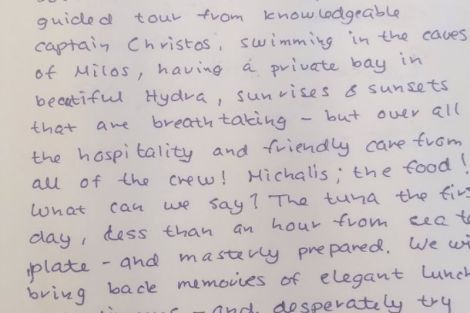 guided tour from knowledgeable
captain Christos, swimming in the caves
of Milos, having a private bay in
beautiful Hydra, sunrises & sunsets
that are breathtaking - but over all
the hospitality and friendly care from
all of the crew! Michalis; the food!
What can we say? The tuna the firs
day, less than an hour from sea to
plate - and masterly prepared. We wi
bring back memories of elegant lunch
- and desperately try